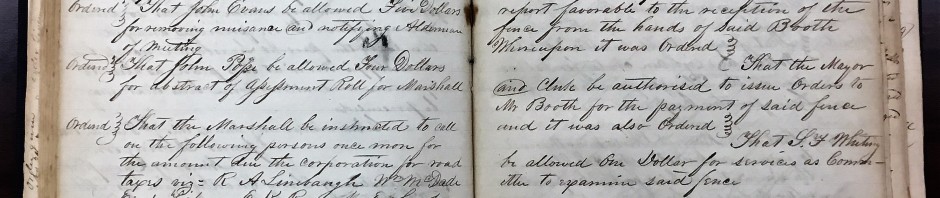 Orderd That John Evans be allowed Five Dollars
for removing nuisance and notifying Alderman
of Meeting
Orderd That John Poſse be allowed Four Dollars
for abstract of Aſseſsment Roll for Marshall
Orderd That the Marshall be instructed to call
on the following persons once mor for
the amount due the corporation for road
taxes viz = R A Linebaugh Wm McDade
report favorable to the reception of the
fence from the hands of Said Booth
Whereupon it was Orderd
That the Mayor
and Clerk be authorised to issue Orders to
Mr Booth for the payment of said fence
and it was also Orderd
That S. F Whiting
be allowed One Dollar for services as Comm-
ittee to examine said fence